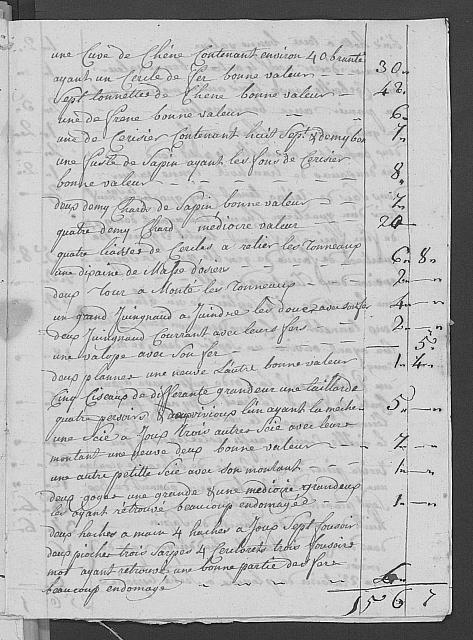 une Cuve de Chêne Contenant environ 40 brante
ayant un Cercle de fer bonne valeur — — 30 „
Sept tonnettes de Chene bonne valeur — 42 „
une de frene bonne valeur — — 6 „
une de Cerisier Contenant huit Sept.r & demy bon 7 „
une fuste de Sapin ayant les fons de Cerisier
bonne valeur — — — — 8 „
deux demy Chars de Sapin bonne valeur — — 7 „
quatre demy Chard mediocre valeur — 20 —
quatre liasses de Cercles a relier les Tonneaux
une dizaine de Masse d'osier — — — 6 „ 8 „
deux tour a Monté les tonneaux — — 2 — „
un grand Juingnaud a Juindre les douves avec son fer 4 — „
deux Juingnaud Courrant avec leurs fers — — 2 — „
une valope avec son fer — — 5 „
deux plannes une neuve L'autre bonne valeur 1 „ 4 „
Cinq Ciseaux de differante grandeur une taillarde
quatre persoirs & un ayant la meche 5 — „
une Scie a Joux trois autres Scie avec leurs
montant une neuve deux bonne valeur — — 7 — „
une autre petitte Scie avec son montant — — 1 — „
deux goges une grande & une mediocre
les ayant retrouvé beaucoup endomagé 1 — „
deux haches a main 4 haches a Joux Sept fousoir
deux pioches trois Sarpes 4 trois fousoirs
mot ayant retrouvé une bonne partie des fers
beaucoup endomagé — — — 6 „
156 7